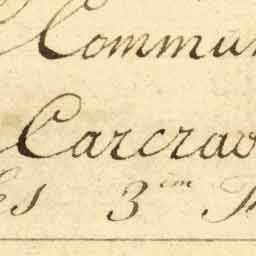 Commun
Carcrav
Es 3em